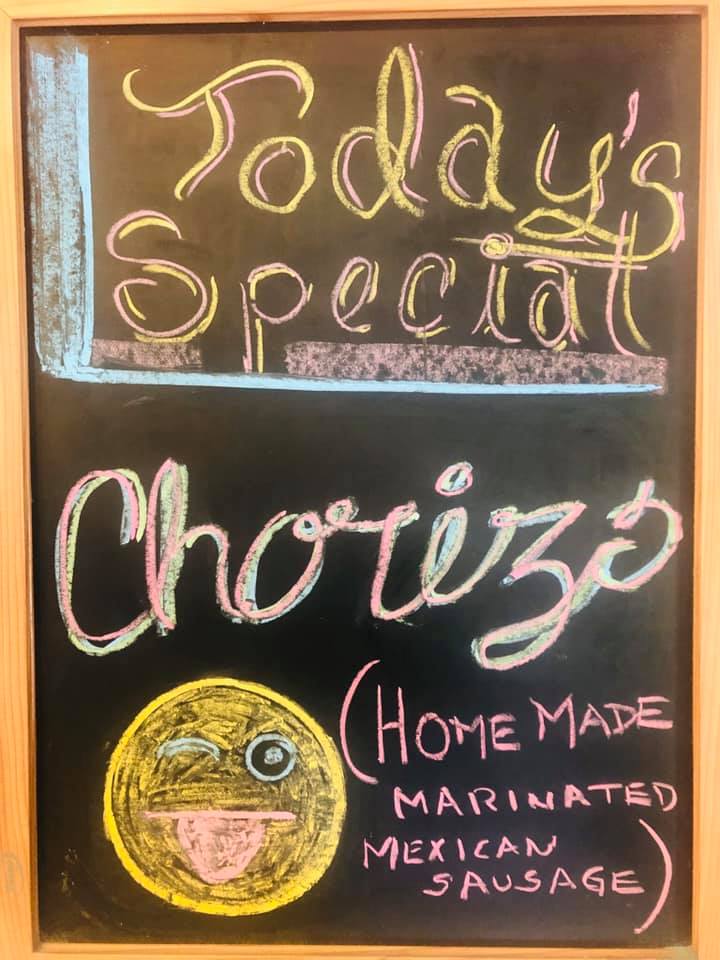 Today's
Special
Chorizo
(HOME MADE
MARINATED
MEXICAN
SAUSAGE)